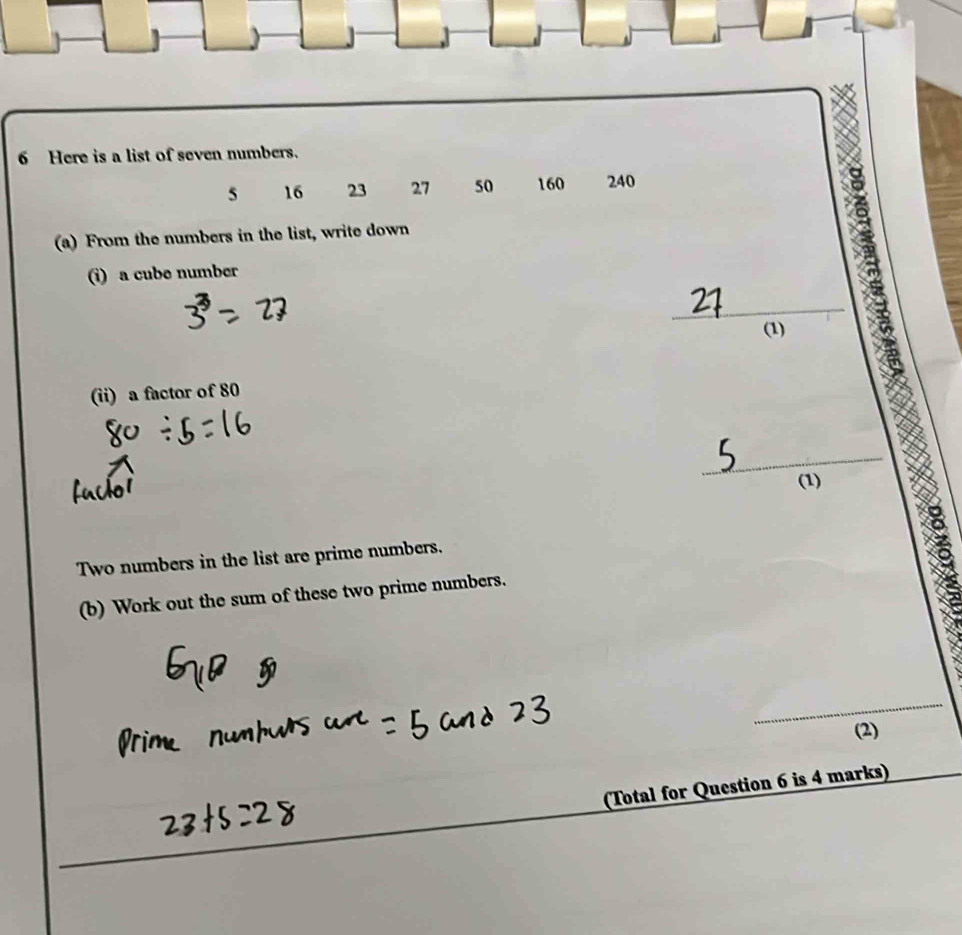 6 Here is a list of seven numbers.
5 16 23 27 50 160 240
(a) From the numbers in the list, write down
(i) a cube number
3³ = 27
27
(1)
(ii) a factor of 80
80 ÷ 5 = 16
factor
5
(1)
Two numbers in the list are prime numbers.
(b) Work out the sum of these two prime numbers.
Prime numbers are = 5 and 23
(2)
23+5=28
(Total for Question 6 is 4 marks)
DO NOT WRITE IN THIS AREA
DO NOT WRITE